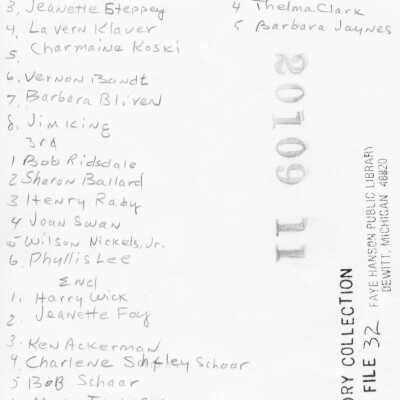 3. Jeanette Steppey
4. La Vern Klaver
5. Charmaine Koski
6. Vernon Bandt
7. Barbara Bliven
8. Jim King
3rd
1 Bob Ridsdale
2 Sharon Ballard
3 Henry Raby
4 Joan Swan
5 Wilson Nickels, Jr.
6. Phyllis Lee
End
1. Harry Wick
2. Jeanette Foy
3. Ken Ackerman
4 Charlene Schaar
5 Bob Schaar
4 Thelma Clark
5 Barbara Jaynes
20109 11
ORY COLLECTION
FILE 32
FAYE HANSON PUBLIC LIBRARY
DEWITT, MICHIGAN 48820